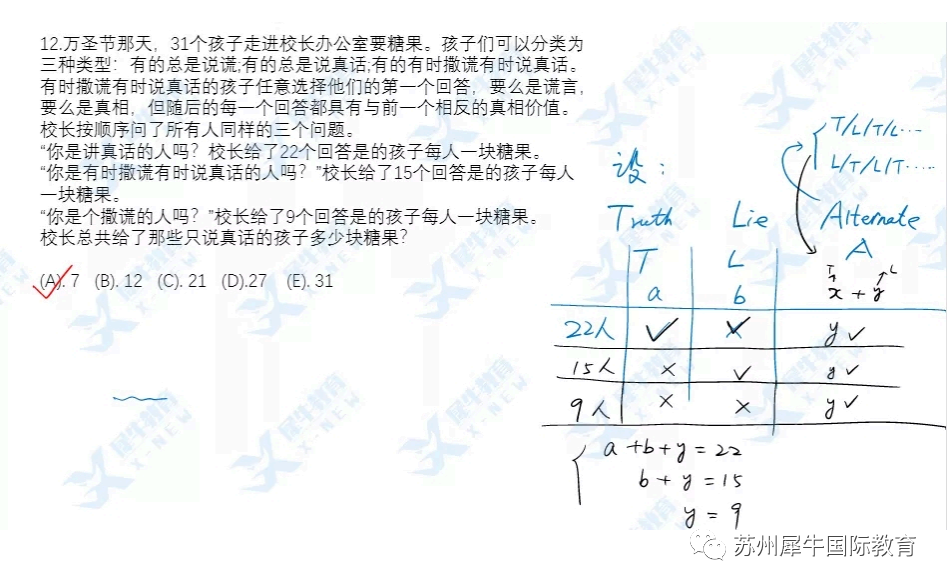 12.万圣节那天，31个孩子走进校长办公室要糖果。孩子们可以分类为
三种类型：有的总是说谎;有的总是说真话;有的有时撒谎有时说真话。
有时撒谎有时说真话的孩子任意选择他们的第一个回答，要么是谎言，
要么是真相，但随后的每一个回答都具有与前一个相反的真相价值。
校长按顺序问了所有人同样的三个问题。
“你是讲真话的人吗？校长给了22个回答是的孩子每人一块糖果。
“你是有时撒谎有时说真话的人吗？”校长给了15个回答是的孩子每人
一块糖果。
“你是个撒谎的人吗？”校长给了9个回答是的孩子每人一块糖果。
校长总共给了那些只说真话的孩子多少块糖果？
(A). 7 (B). 12 (C). 21 (D).27 (E). 31
T/L/T/L...
L/T/L/T.....
设：
Truth Lie Alternate
T L A
a b x + y
T L
22人 ✓ ✓ y ✓
15人 × ✓ y ✓
9人 × × y ✓
a + b + y = 22
b + y = 15
y = 9
犀牛教育
X-NEW
苏州犀牛国际教育